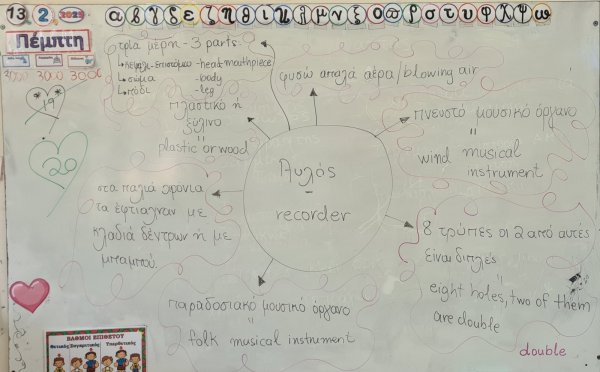 13 2 2025 α β γ δ ε ζ η θ ι κ λ μ ν ξ ο π ρ σ τ υ φ χ ψ ω
Πέμπτη
τρία μέρη - 3 parts
κεφάλι-επιστόμιο - head, mouthpiece
σώμα - body
πόδι - leg
φυσώ απαλά αέρα / blowing air
19
20
πλαστικό ή
ξύλινο
=
plastic or wood
πνευστό μουσικό όργανο
=
wind musical
instrument
Αυλός
-
recorder
στα παλιά χρόνια
τα έφτιαχναν με
κλαδιά δέντρων ή με
μπαμπού.
8 τρύπες οι 2 από αυτές
είναι διπλές
=
eight holes, two of them
are double
παραδοσιακό μουσικό όργανο
=
folk musical instrument
double
ΒΑΘΜΟΙ ΕΠΙΘΕΤΟΥ
Θετικός Συγκριτικός Υπερθετικός